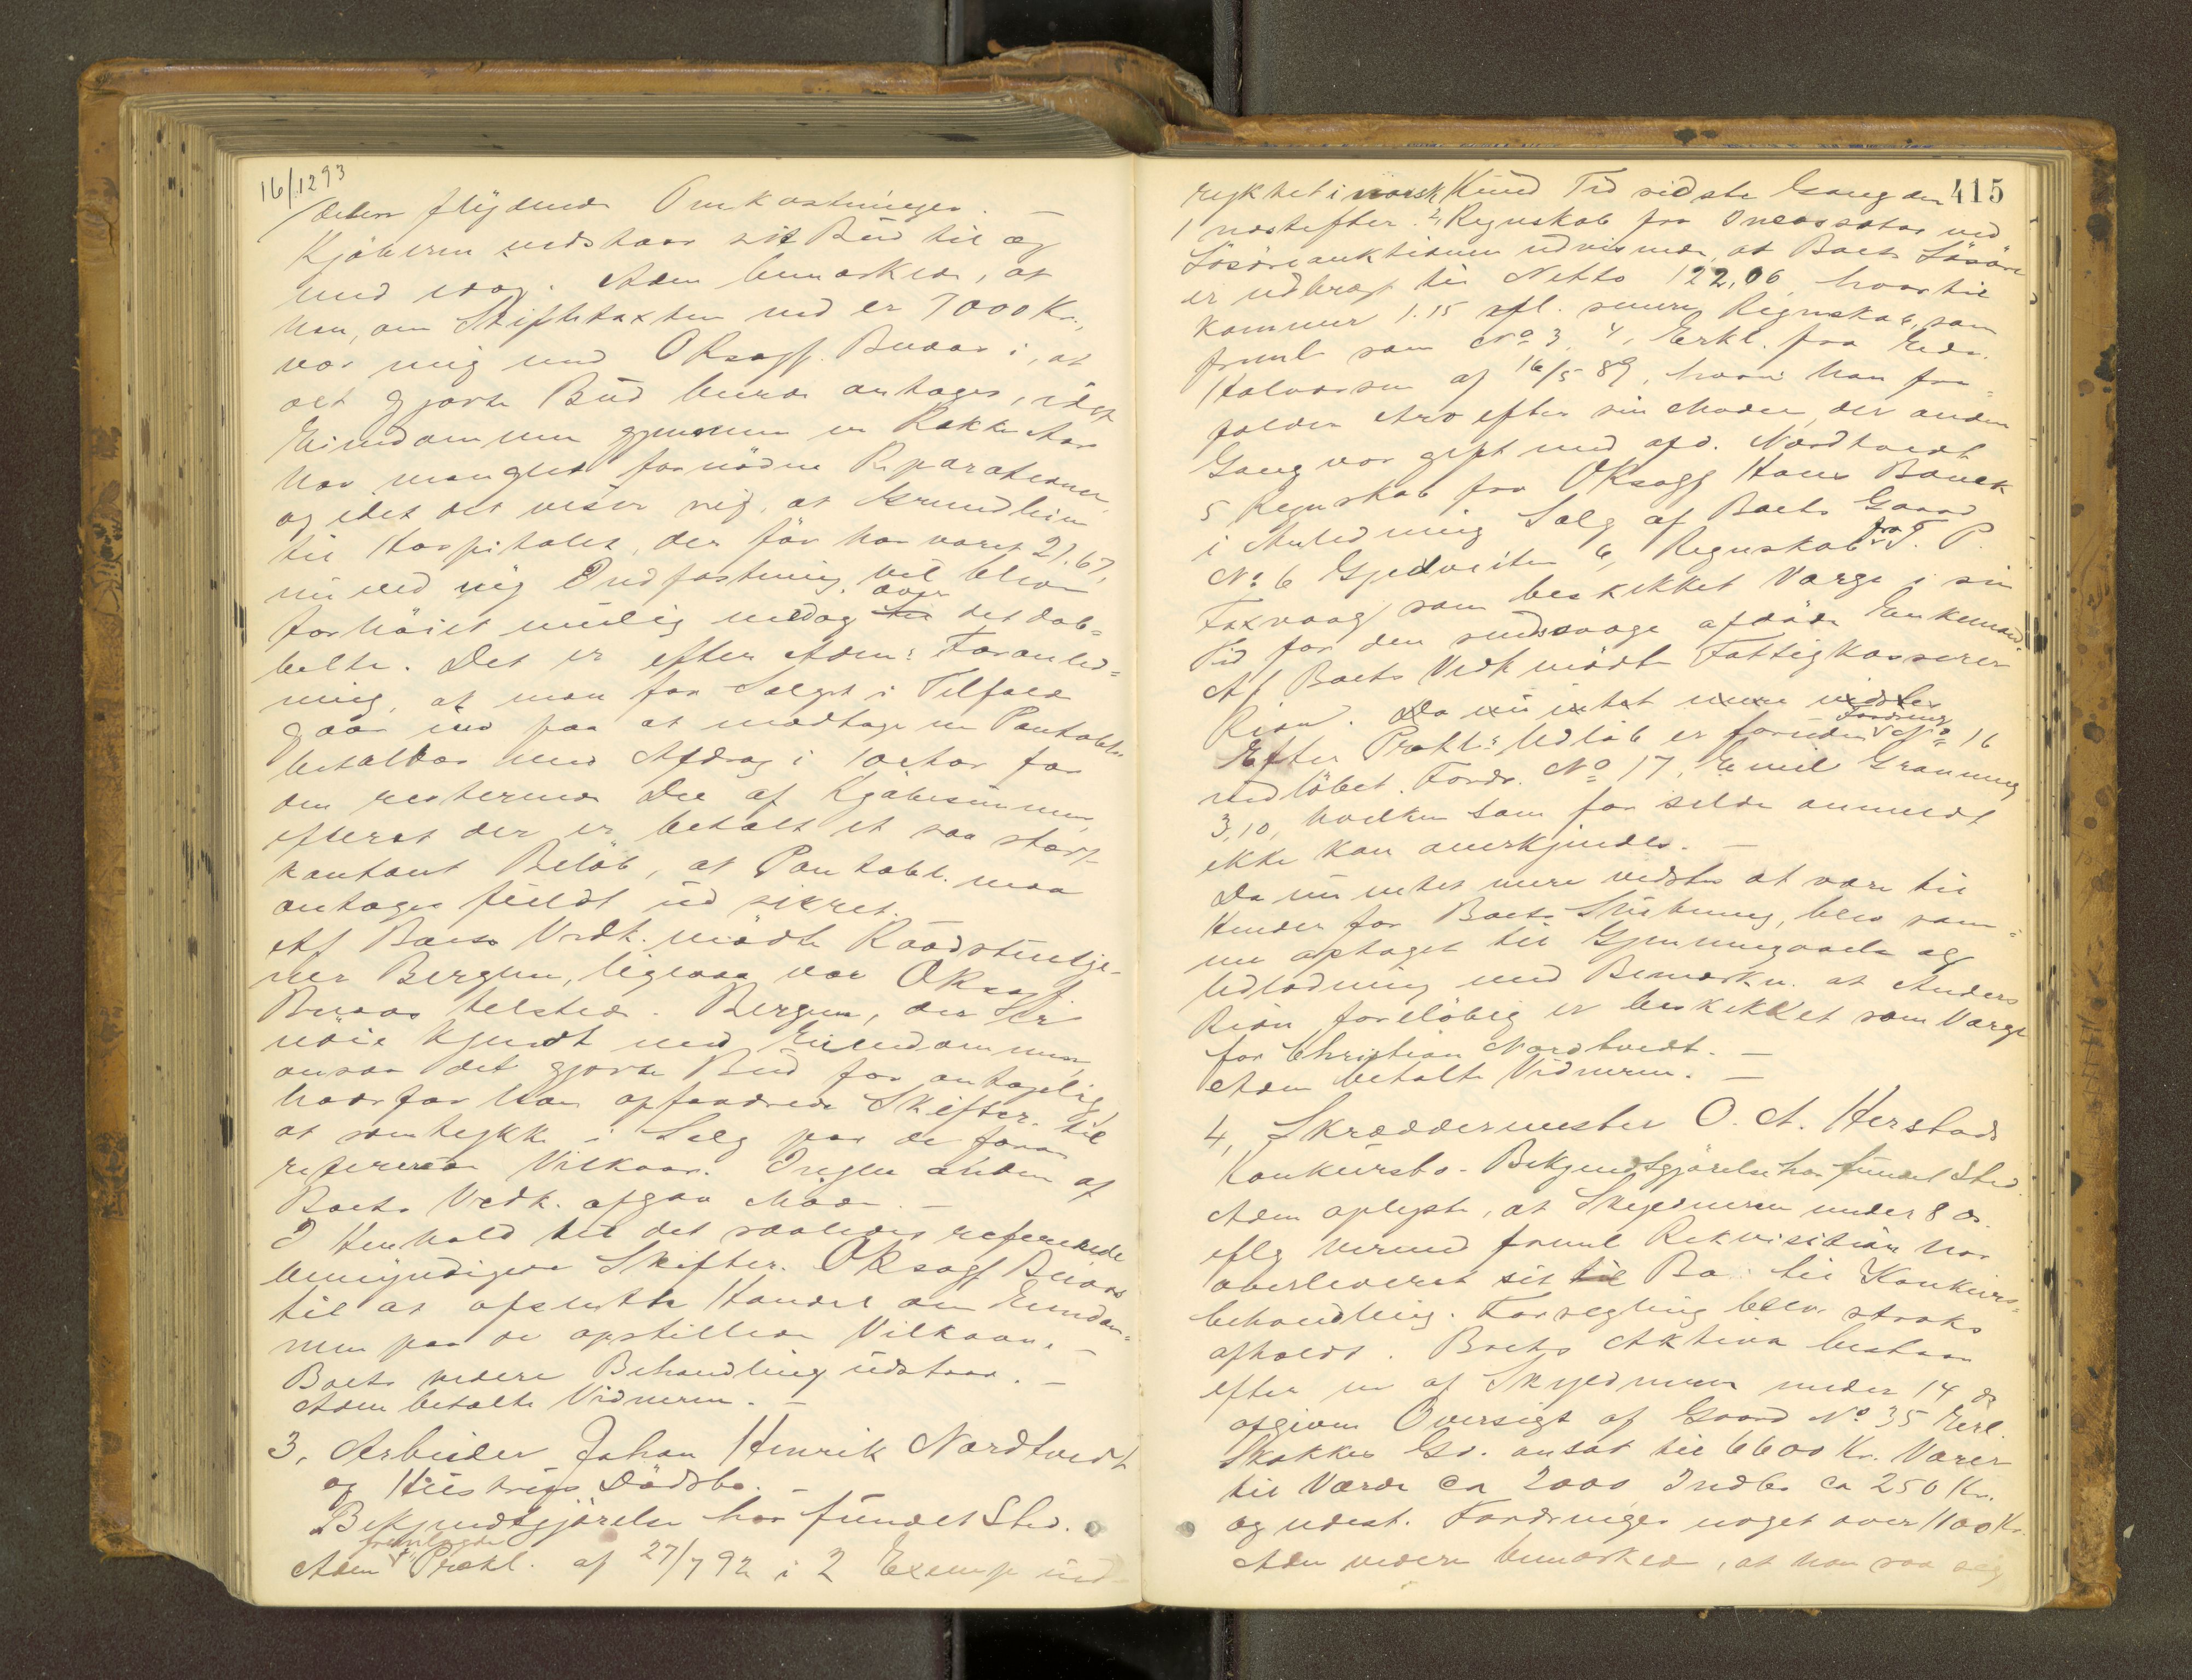 16/1293
deler flydende Omkostninger. —
Kjöberen vedstaar sit Bud til og
med idag. Adm bemærkede, at
han, om Skiftetaxten end er 7000 Kr.,
var enig med OKsagf. Buaas i, at
det gjorte Bud burde antages, idet
Eiendommen gjennem en Række Aar
har manglet fornödne Reparationer,
og idet det viser sig, at Grundleien
til Hospitalet, der för har været 21.67,
nu ved ny Indfæstning vil blive
forhöiet muligens over det dob-
belte. Det er efter Adm: Foranled-
ning, at man for Salget i Tilfælde
gaar ind paa at modtage en Pantobl.
betalbar med Afdrag i 10 Aar for
den resterende Del af Kjöbesummen,
efterat der er betalt et saa stort
kontant Belöb, at Pantobl. maa
antages fuldt ud sikret.
Af Boets Vedk. mödte Raadstutje-
ner Bergum, ligesaa var OKsagf
Buaas tilstede. Bergum, der er
nöie kjendt med Eiendommen,
ansaa det gjorte Bud for antagelig,
hvorfor han opfordrede Skifter. til
at samtykke i Salg paa de foran
refererede Vilkaar. Ingen anden af
Boets Vedk. afgav Möde. —
I Henhold til det saaledes refererede
bemyndigede Skifter. OKsagf Buaas
til at afslutte Handel om Eiendom-
men paa de opstillede Vilkaar. —
Boets videre Behandling udstaar. —
Adm betalte Vidnerne. —
3, Arbeider Johan Henrik Nordtvedt
og Hustrus Dödsbo. —
Bekjendtgjörelse har fundet Sted.
Adm fremlagde Prokl. af 27/7 92 i 2 Exempl ind-
415
rykket i norsk Kund Tid sidste Gang den
1 næstefter. 2, Regnskab fra Incassator ved
Lösöreauktionen udvisende, at Boets Lösöre
er udbragt til Netto 122,06, hvortil
kommer 1.15 efl. senere Regnskab, som
freml som No 3. 4, Erkl. fra Edv.
Halvorsen af 16/5 89, hvori han fra-
falder Arv efter sin Moder, der anden
Gang var gift med afd. Nordtvedt
5 Regnskab fra OKsagf Hans Bauck
i Anledning Salg af Boets Gaard
No 6 Gjedveiten 6, Regnskab fra T. P.
Faxvaag som beskikket Værge i sin
Tid for den sindssvage afdöde Enkemand.
Af Boets Vedk mödte Fattigkasserer
Rian. Da nu intet mere vidstes
Efter Prokl: Udlöb er foruden Fordring No 16
indlöbet. Fordr. No 17, Emil Granning
3,10, hvilken som for silde anmeldt
ikke kan anerkjendes. —
Da nu intet mere vidstes at være til
Hinder for Boets Slutning, blev sam-
me optaget til Gjennemgaaelse og
Udlodning med Bemærkn. at Anders
Rian foreløbig er beskikket som Værge
for Christian Nordtvedt. —
Adm betalte Vidnerne. —
4, Skræddermester O. A. Herstads
Konkursbo. Bekjendtgjörelse har fundet Sted.
Adm oplyste, at Skyldneren under 8 ds.
eflg herved freml Rekvisition har
overleveret sit Bo til Konkurs-
behandling. Forsegling blev straks
afholdt. Boets Aktiva bestaar
efter en af Skyldneren under 14 ds
afgiven Oversigt af Gaard No 35 Erl.
Skakkes Gd. ansat til 6600 Kr. Varer
til Værdi ca 2000 Indbo ca 250 Kr.
og udest. Fordringer noget over 1100 Kr.
Adm videre bemærkede, at han saa sig